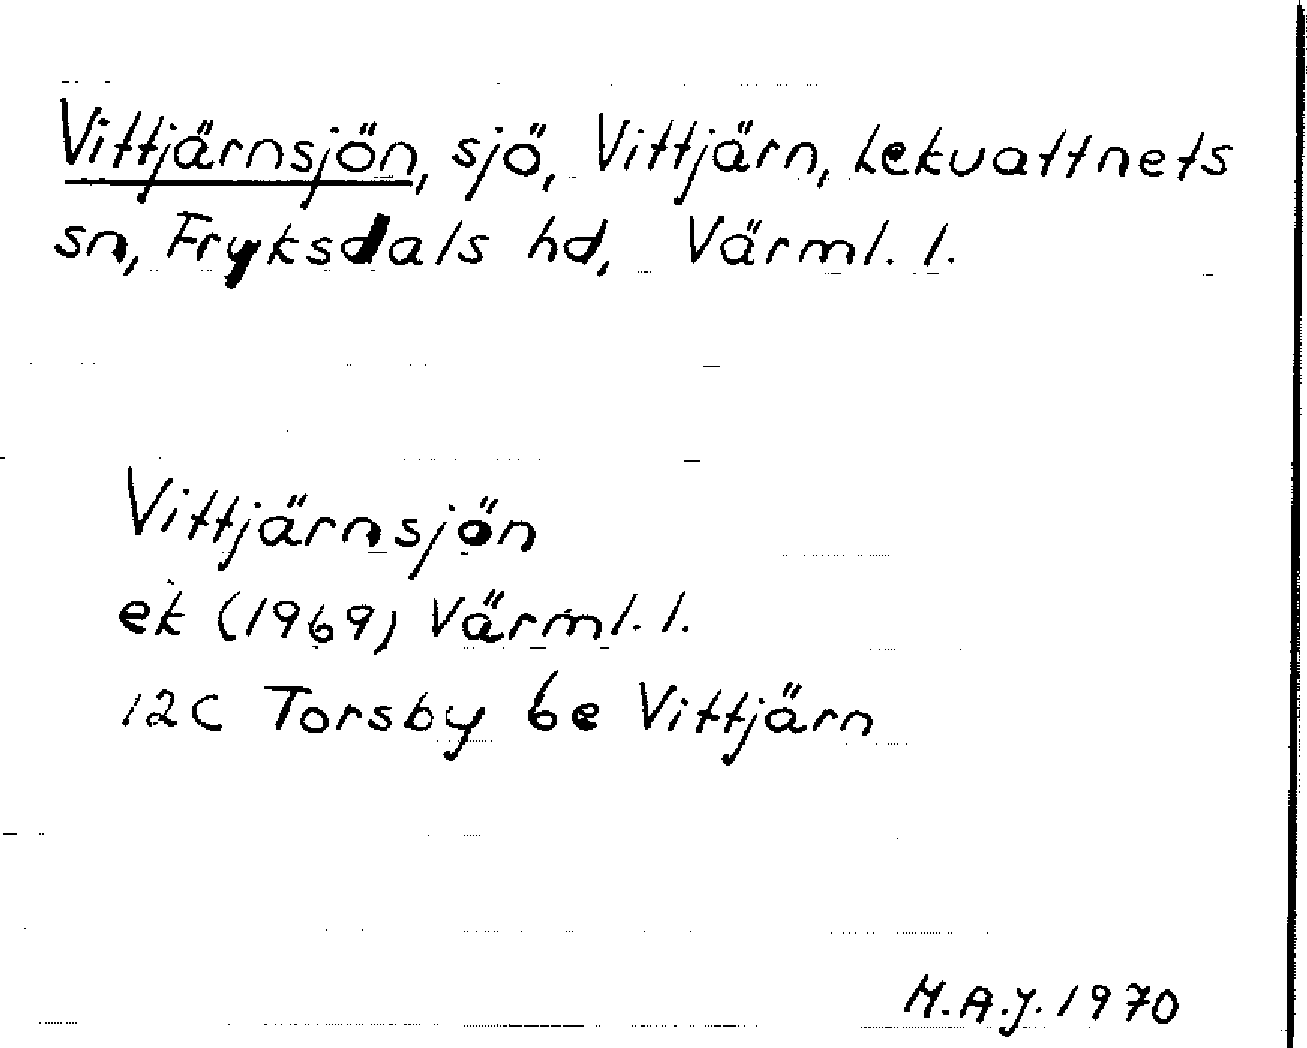 Vittjärnsjön, sjö, Vittjärn, Lekvattnets
sn, Fryksdals hd, Värml. l.
Vittjärnsjön
ek (1969) Värml. l.
12C Torsby 6e Vittjärn
M.A.J. 1970